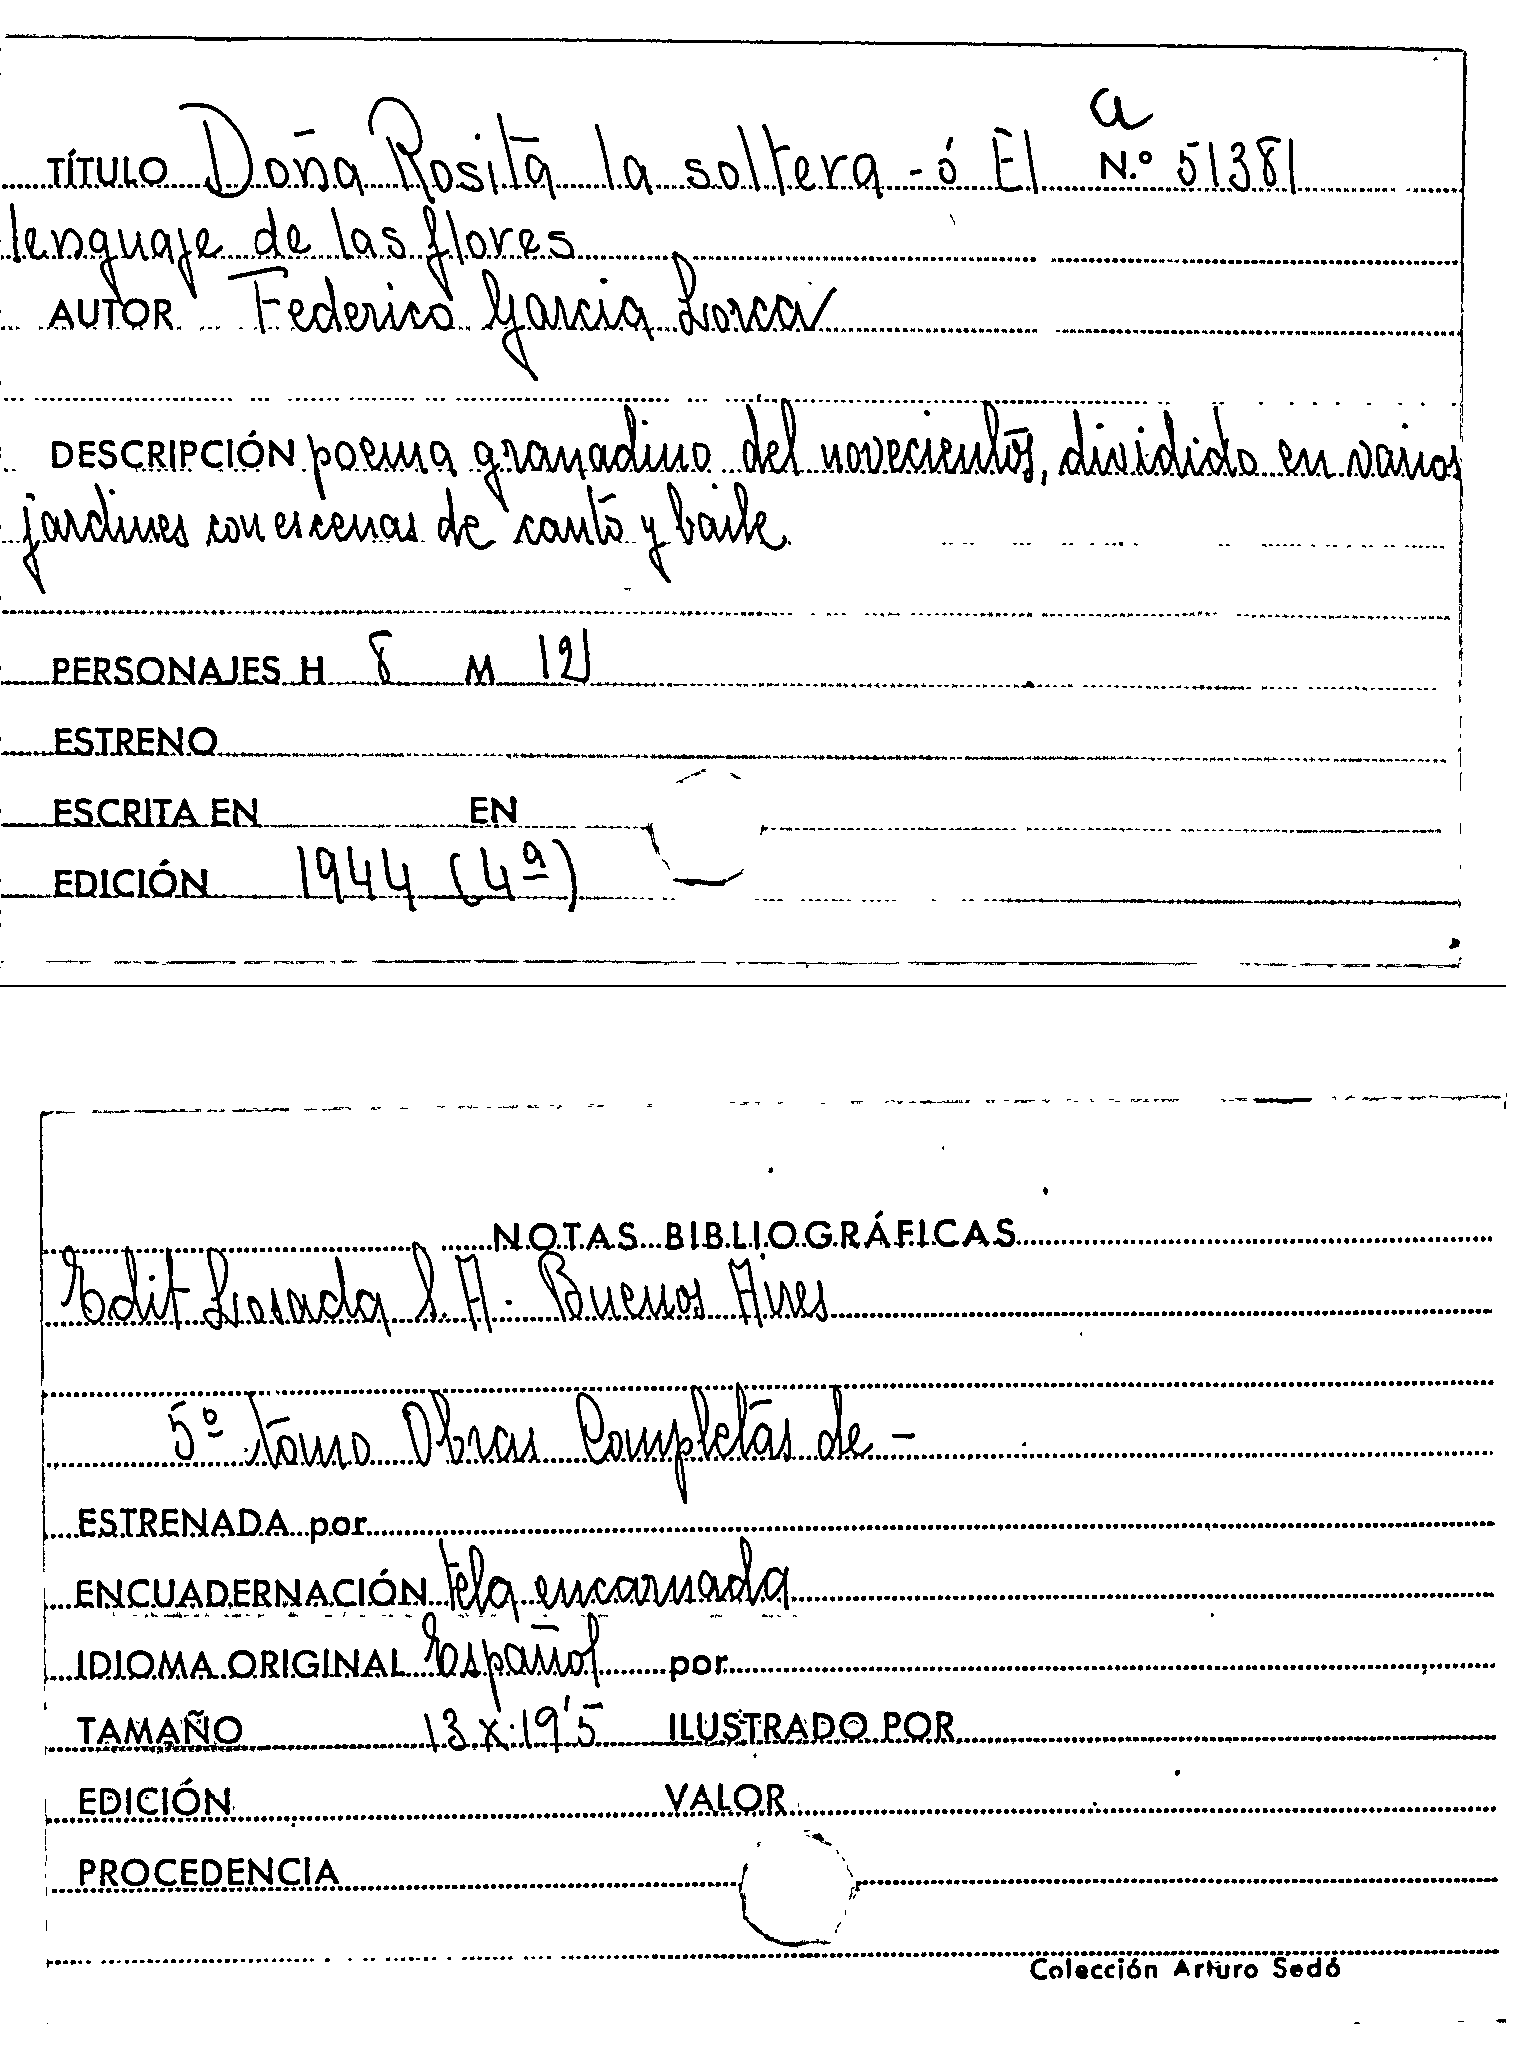 a
TÍTULO Doña Rosita la soltera - ó El N.º 51381
lenguaje de las flores
AUTOR Federico Garcia Lorca
DESCRIPCIÓN poema granadino del novecientos, dividido en varios
jardines con escenas de canto y baile.
PERSONAJES H 8 M 12
ESTRENO
ESCRITA EN EN
EDICIÓN 1944 (4ª)
NOTAS BIBLIOGRÁFICAS
Edit Losada S.A. Buenos Aires
5º tomo Obras Completas de -
ESTRENADA por
ENCUADERNACIÓN tela encarnada
IDIOMA ORIGINAL Español por
TAMAÑO 13 x 19'5 ILUSTRADO POR
EDICIÓN VALOR
PROCEDENCIA
Colección Arturo Sedó